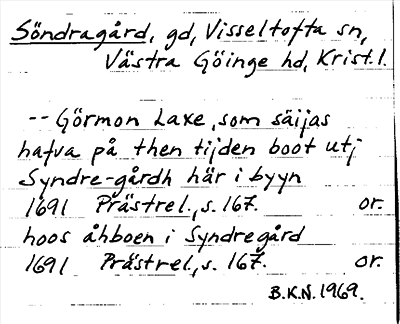 Söndragård, gd, Visseltofta sn,
Västra Göinge hd, Krist. l.
-- Görmon Laxe, som säijas
hafva på then tijden boot utj
Syndre-gårdh här i byyn
1691 Prästrel., s. 167. or.
hoos åhboen i Syndregård
1691 Prästrel., s. 167. or.
B.K.N. 1969.